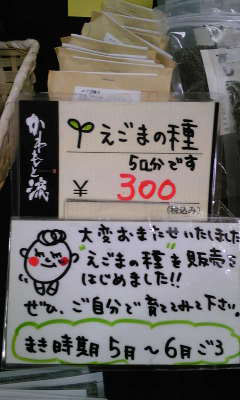 かわもと流
えごまの種
50口分です
¥300
(税込み)
大変おまたせいたしました
"えごまの種"を販売を
はじめました!!
ぜひ、ご自分で育ててみて下さい。
まき時期 5月〜6月ごろ